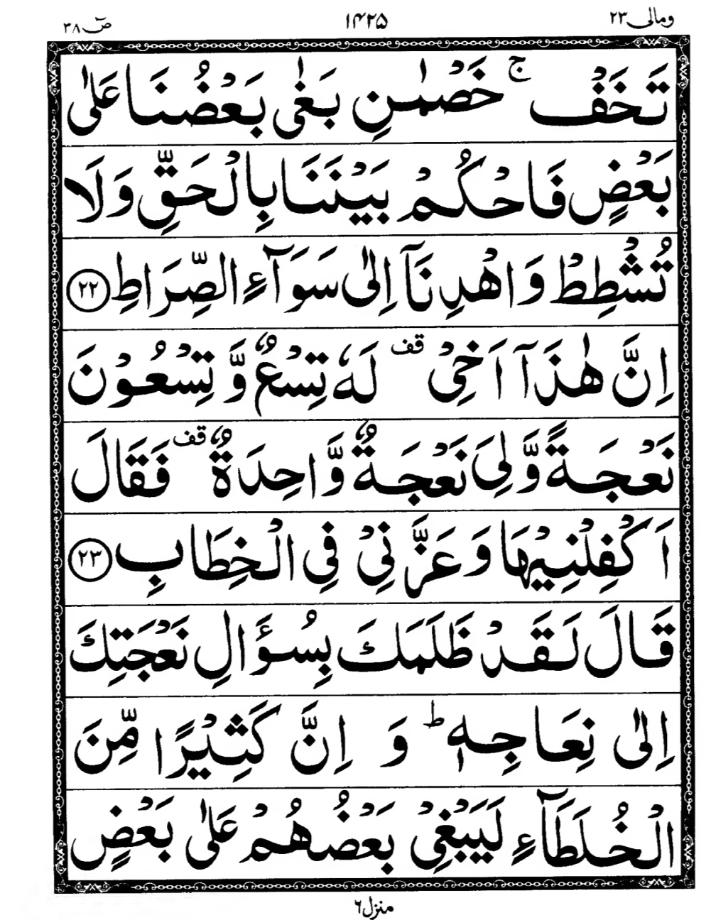 ومالی ۲۳ ۱۴۲۵ صٓ ۳۸
تَخَفۡ ۚ خَصۡمٰنِ بَغٰی بَعۡضُنَا عَلٰی
بَعۡضٍ فَاحۡکُمۡ بَیۡنَنَا بِالۡحَقِّ وَلَا
تُشۡطِطۡ وَاهۡدِنَاۤ اِلٰی سَوَآءِ الصِّرَاطِ ﴿۲۲﴾
اِنَّ هٰذَاۤ اَخِیۡ ۟ لَهٗ تِسۡعٌ وَّ تِسۡعُوۡنَ
نَعۡجَةً وَّلِیَ نَعۡجَةٌ وَّاحِدَةٌ ۟ فَقَالَ
اَکۡفِلۡنِیۡهَا وَعَزَّنِیۡ فِی الۡخِطَابِ ﴿۲۳﴾
قَالَ لَقَدۡ ظَلَمَكَ بِسُؤَالِ نَعۡجَتِكَ
اِلٰی نِعَاجِهٖ ؕ وَ اِنَّ کَثِیۡرًا مِّنَ
الۡخُلَطَآءِ لَیَبۡغِیۡ بَعۡضُهُمۡ عَلٰی بَعۡضٍ
منزل ۶